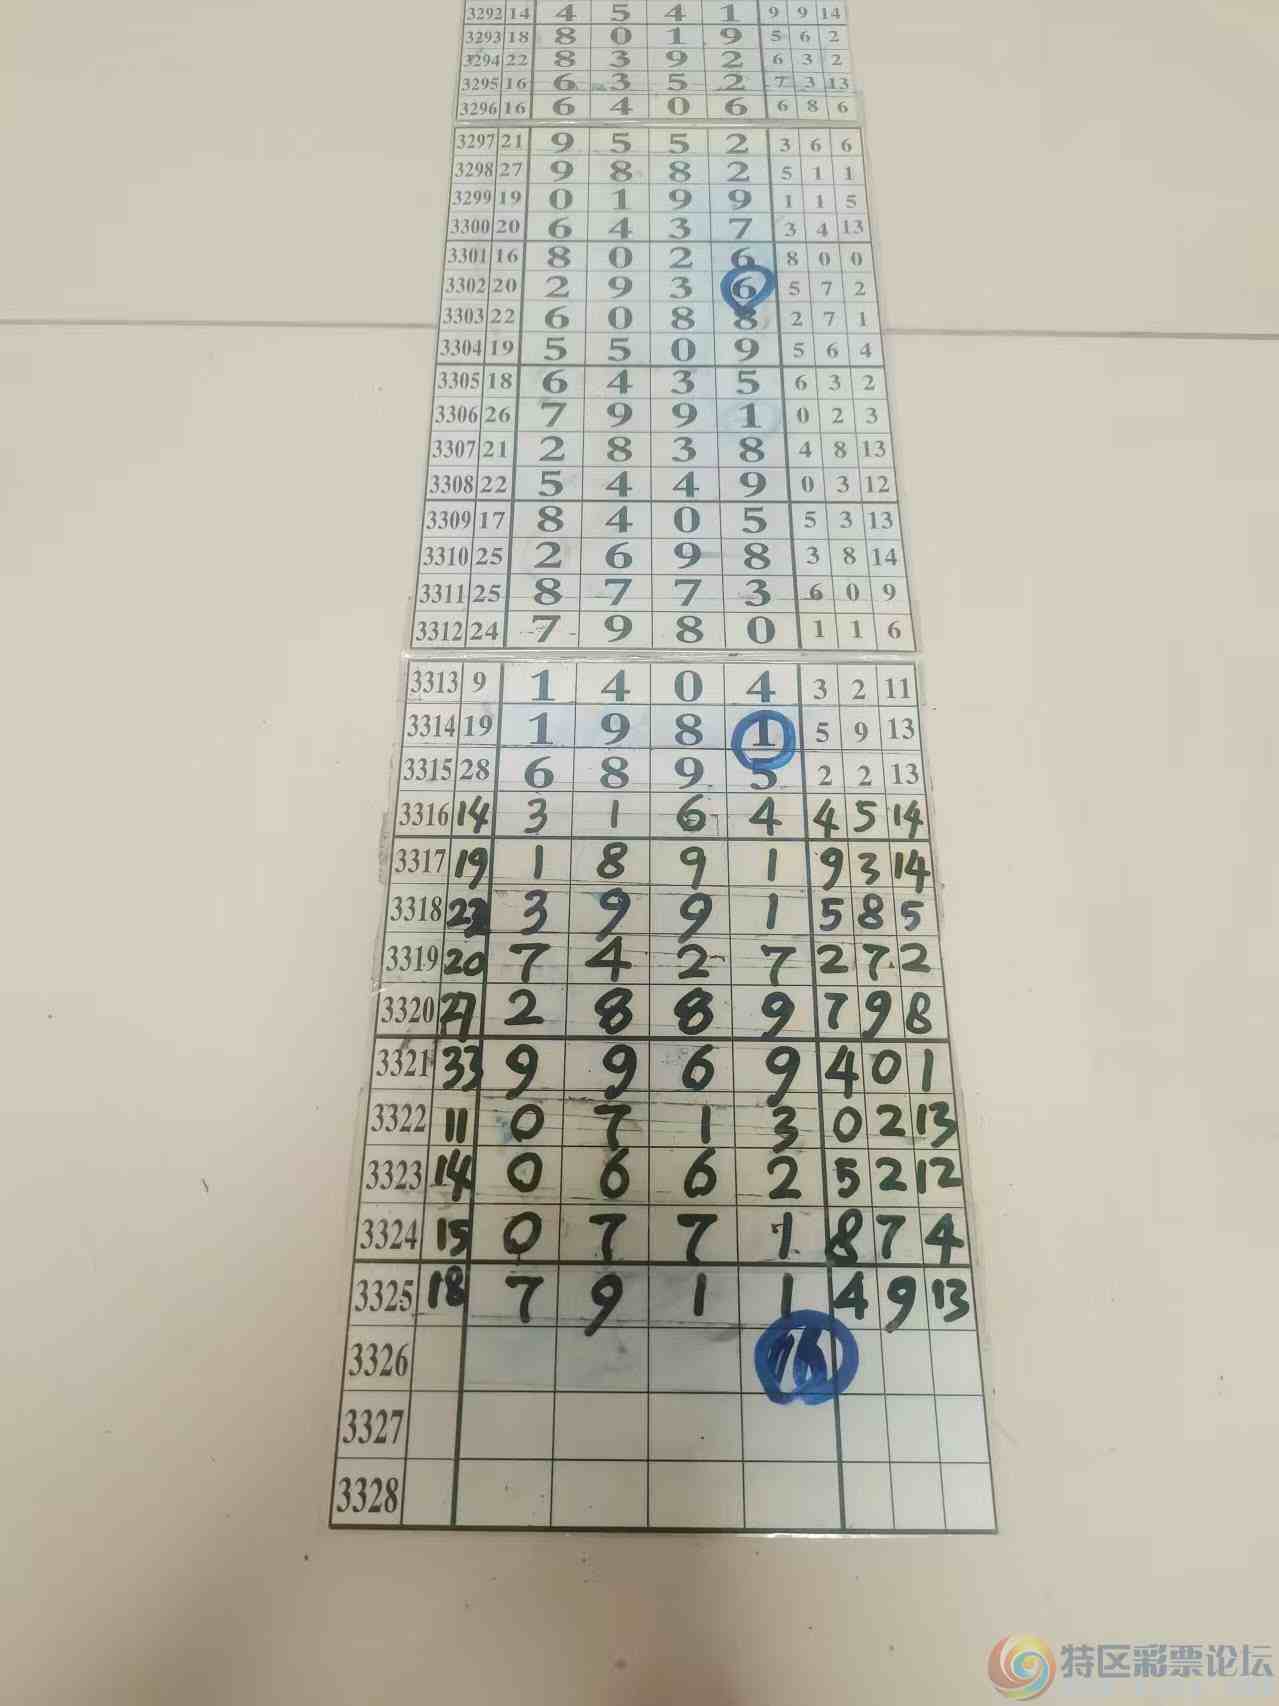 3292 14 4 5 4 1 9 9 14
3293 18 8 0 1 9 5 6 2
3294 22 8 3 9 2 6 3 2
3295 16 6 3 5 2 7 3 13
3296 16 6 4 0 6 6 8 6
3297 21 9 5 5 2 3 6 6
3298 27 9 8 8 2 5 1 1
3299 19 0 1 9 9 1 1 5
3300 20 6 4 3 7 3 4 13
3301 16 8 0 2 6 8 0 0
3302 20 2 9 3 6 5 7 2
3303 22 6 0 8 8 2 7 1
3304 19 5 5 0 9 5 6 4
3305 18 6 4 3 5 6 3 2
3306 26 7 9 9 1 0 2 3
3307 21 2 8 3 8 4 8 13
3308 22 5 4 4 9 0 3 12
3309 17 8 4 0 5 5 3 13
3310 25 2 6 9 8 3 8 14
3311 25 8 7 7 3 6 0 9
3312 24 7 9 8 0 1 1 6
3313 9 1 4 0 4 3 2 11
3314 19 1 9 8 1 5 9 13
3315 28 6 8 9 5 2 2 13
3316 14 3 1 6 4 4 5 14
3317 19 1 8 9 1 9 3 14
3318 22 3 9 9 1 5 8 5
3319 20 7 4 2 7 2 7 2
3320 27 2 8 8 9 7 9 8
3321 33 9 9 6 9 4 0 1
3322 11 0 7 1 3 0 2 13
3323 14 0 6 6 2 5 2 12
3324 15 0 7 7 1 8 7 4
3325 18 7 9 1 1 4 9 13
3326
3327
3328
特区彩票论坛